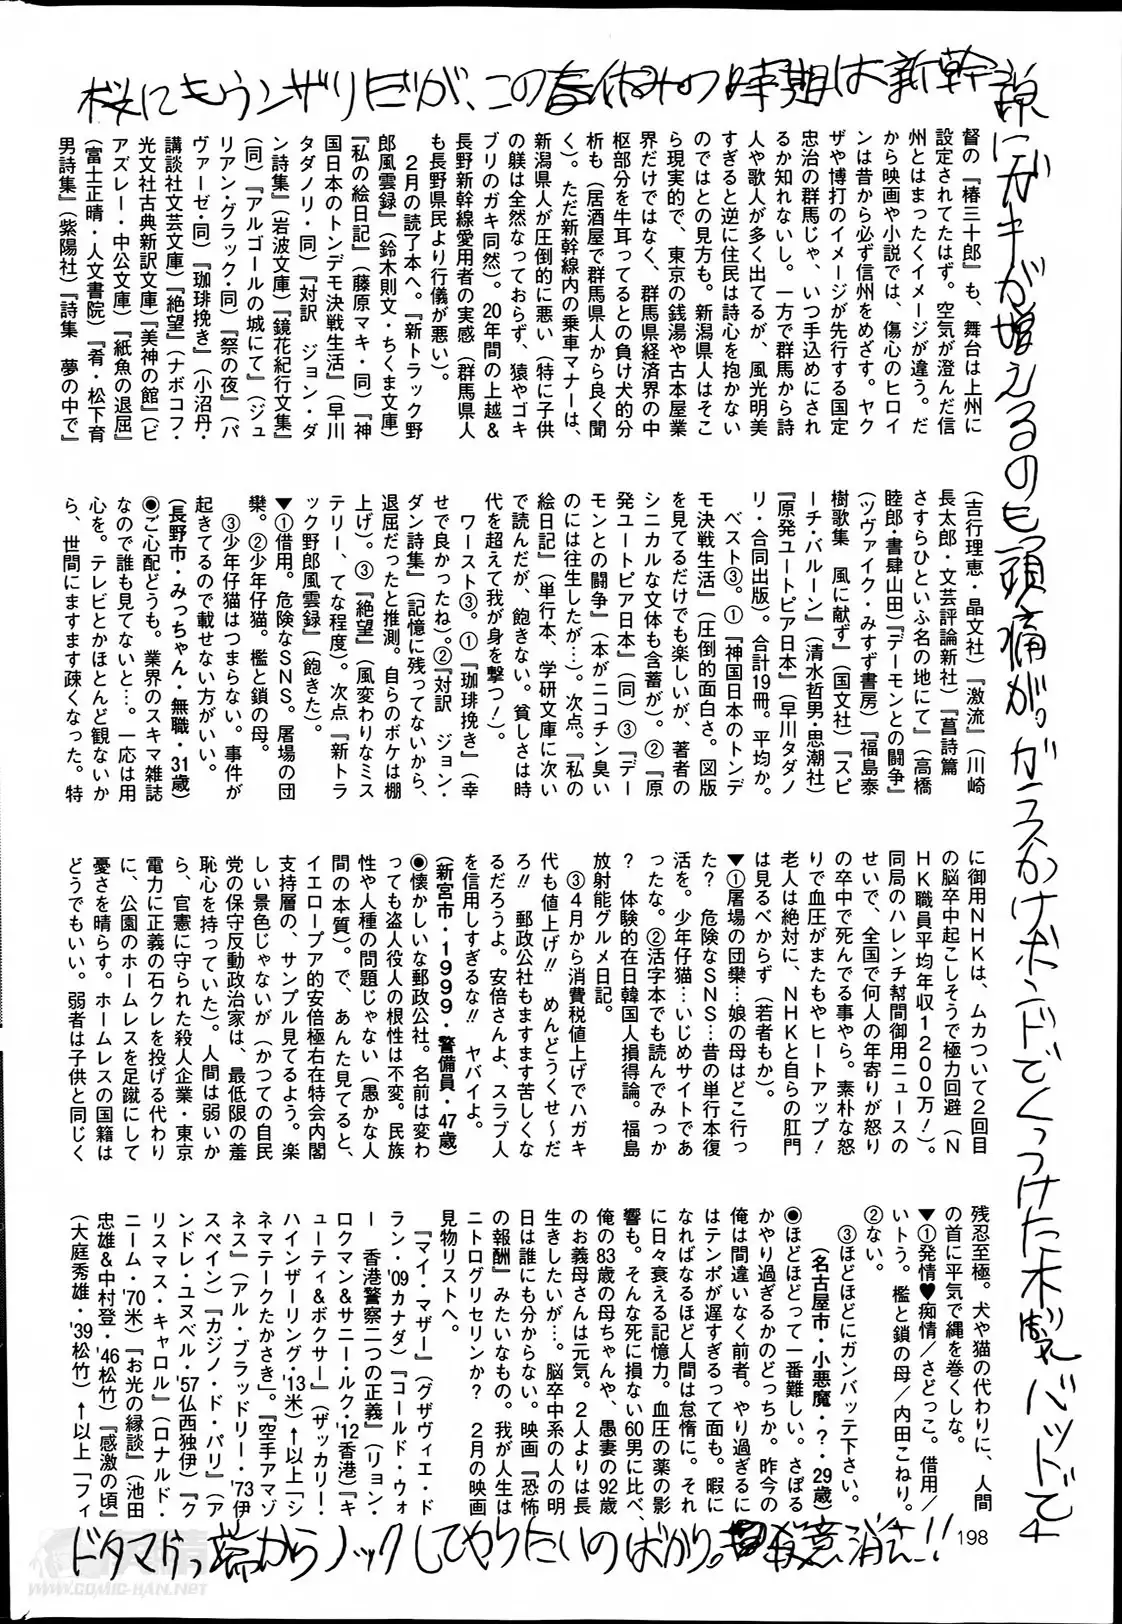 桜にもうンザリだが、この春休みの時期は新幹線
にガキが増えるのも頭痛が。ガラスかけボンドでくっつけた木製バットで
ドタマドっ端からノックしてやりたいのばかり。
督の『椿三十郎』も、舞台は上州に
設定されてたはず。空気が澄んだ信
州とはまったくイメージが違う。だ
から映画や小説では、傷心のヒロイ
ンは昔から必ず信州をめざす。ヤク
ザや博打のイメージが先行する国定
忠治の群馬じゃ、いつ手込めにされ
るか知れないし。一方で群馬から詩
人や歌人が多く出てるが、風光明美
すぎると逆に住民は詩心を抱かない
のではとの見方も。新潟県人はそこ
ら現実的で、東京の銭湯や古本屋業
界だけではなく、群馬県経済界の中
枢部分を牛耳ってるとの負け犬的分
析も（居酒屋で群馬県人から良く聞
く）。ただ新幹線内の乗車マナーは、
新潟県人が圧倒的に悪い（特に子供
の躾は全然なっておらず、猿やゴキ
ブリのガキ同然）。20年間の上越＆
長野新幹線愛用者の実感（群馬県人
も長野県民より行儀が悪い）。
２月の読了本へ。『新トラック野
郎風雲録』（鈴木則文・ちくま文庫）
『私の絵日記』（藤原マキ・同）『神
国日本のトンデモ決戦生活』（早川
タダノリ・同）『対訳　ジョン・ダ
ン詩集』（岩波文庫）『鏡花紀行文集』
（同）『アルゴールの城にて』（ジュ
リアン・グラック・同）『祭の夜』（パ
ヴァーゼ・同）『珈琲挽き』（小沼丹・
講談社文芸文庫）『絶望』（ナボコフ・
光文社古典新訳文庫）『美神の館』（ビ
アズレー・中公文庫）『紙魚の退屈』
（富士正晴・人文書院）『肴・松下育
男詩集』（紫陽社）『詩集　夢の中で』
（吉行理恵・晶文社）『激流』（川崎
長太郎・文芸評論新社）『菖詩篇
さすらひといふ名の地にて』（高橋
睦郎・書肆山田）『デーモンとの闘争』
（ツヴァイク・みすず書房）『福島泰
樹歌集　風に献ず』（国文社）『スピ
ーチ・バルーン』（清水哲男・思潮社）
『原発ユートピア日本』（早川タダノ
リ・合同出版）。合計19冊。平均か。
ベスト③。①『神国日本のトンデ
モ決戦生活』（圧倒的面白さ。図版
を見てるだけでも楽しいが、著者の
シニカルな文体も含蓄が）。②『原
発ユートピア日本』（同）③『デー
モンとの闘争』（本がニコチン臭い
のには往生したが…）。次点。『私の
絵日記』（単行本、学研文庫に次い
で読んだが、飽きない。貧しさは時
代を超えて我が身を撃つ！）。
ワースト③。①『珈琲挽き』（幸
せで良かったね）。②『対訳　ジョン・
ダン詩集』（記憶に残ってないから、
退屈だったと推測。自らのボケは棚
上げ）。③『絶望』（風変わりなミス
テリー、てな程度）。次点『新トラ
ック野郎風雲録』（飽きた）。
▼①借用。危険なＳＮＳ。屠場の団
欒。②少年仔猫。檻と鎖の母。
③少年仔猫はつまらない。事件が
起きてるので載せない方がいい。
（長野市・みっちゃん・無職・31歳）
◉ご心配どうも。業界のスキマ雑誌
なので誰も見てないと…。一応は用
心を。テレビとかほとんど観ないか
ら、世間にますます疎くなった。特
に御用ＮＨＫは、ムカついて２回目
の脳卒中起こしそうで極力回避（Ｎ
ＨＫ職員平均年収１２００万！）。
同局のハレンチ幇間御用ニュースの
せいで、全国で何人の年寄りが怒り
の卒中で死んでる事やら。素朴な怒
りで血圧がまたもやヒートアップ！
老人は絶対に、ＮＨＫと自らの肛門
は見るべからず（若者もか）。
▼①屠場の団欒…娘の母はどこ行っ
た？　危険なＳＮＳ…昔の単行本復
活を。少年仔猫…いじめサイトであ
ったな。②活字本でも読んでみっか
？　体験的在日韓国人損得論。福島
放射能グルメ日記。
③４月から消費税値上げでハガキ
代も値上げ!!　めんどうくせ～だ
ろ!!　郵政公社もますます苦しくな
るだろうよ。安倍さんよ、スラブ人
を信用しすぎるな!!　ヤバイよ。
（新宮市・１９９９・警備員・47歳）
◉懐かしいな郵政公社。名前は変わ
っても盗人役人の根性は不変。民族
性や人種の問題じゃない（愚かな人
間の本質）。で、あんた見てると、
イエローブア的安倍極右在特会内閣
支持層の、サンプル見てるよう。楽
しい景色じゃないが（かつての自民
党の保守反動政治家は、最低限の羞
恥心を持っていた）。人間は弱いか
ら、官憲に守られた殺人企業・東京
電力に正義の石クレを投げる代わり
に、公園のホームレスを足蹴にして
憂さを晴らす。ホームレスの国籍は
どうでもいい。弱者は子供と同じく
残忍至極。犬や猫の代わりに、人間
の首に平気で縄を巻くしな。
▼①発情♥痴情／さどっこ。借用／
いトう。檻と鎖の母／内田こねり。
②ない。
③ほどほどにガンバッテ下さい。
（名古屋市・小悪魔・？・29歳）
◉ほどほどって一番難しい。さぼる
かやり過ぎるかのどっちか。昨今の
俺は間違いなく前者。やり過ぎるに
はテンポが遅すぎるって面も。暇に
なればなるほど人間は怠惰に。それ
に日々衰える記憶力。血圧の薬の影
響も。そんな死に損ない60男に比べ、
俺の83歳の母ちゃんや、愚妻の92歳
のお義母さんは元気。２人よりは長
生きしたいが…。脳卒中系の人の明
日は誰にも分からない。映画『恐怖
の報酬』みたいなもの。我が人生は
ニトログリセリンか？　２月の映画
見物リストへ。
『マイ・マザー』（グザヴィエ・ド
ラン・'09カナダ）『コールド・ウォ
ー　香港警察二つの正義』（リョン・
ロクマン＆サニー・ルク・'12香港）『キ
ューティ＆ボクサー』（ザッカリー・
ハインザーリング・'13米）↑以上「シ
ネマテークたかさき」。『空手アマゾ
ネス』（アル・ブラッドリー・'73伊
スペイン）『カジノ・ド・パリ』（ア
ンドレ・ユヌベル・'57仏西独伊）『ク
リスマス・キャロル』（ロナルド・
ニーム・'70米）『お光の縁談』（池田
忠雄＆中村登・'46松竹）『感激の頃』
（大庭秀雄・'39松竹）↑以上「フィ
198
WWW.COMIC-HAN.NET